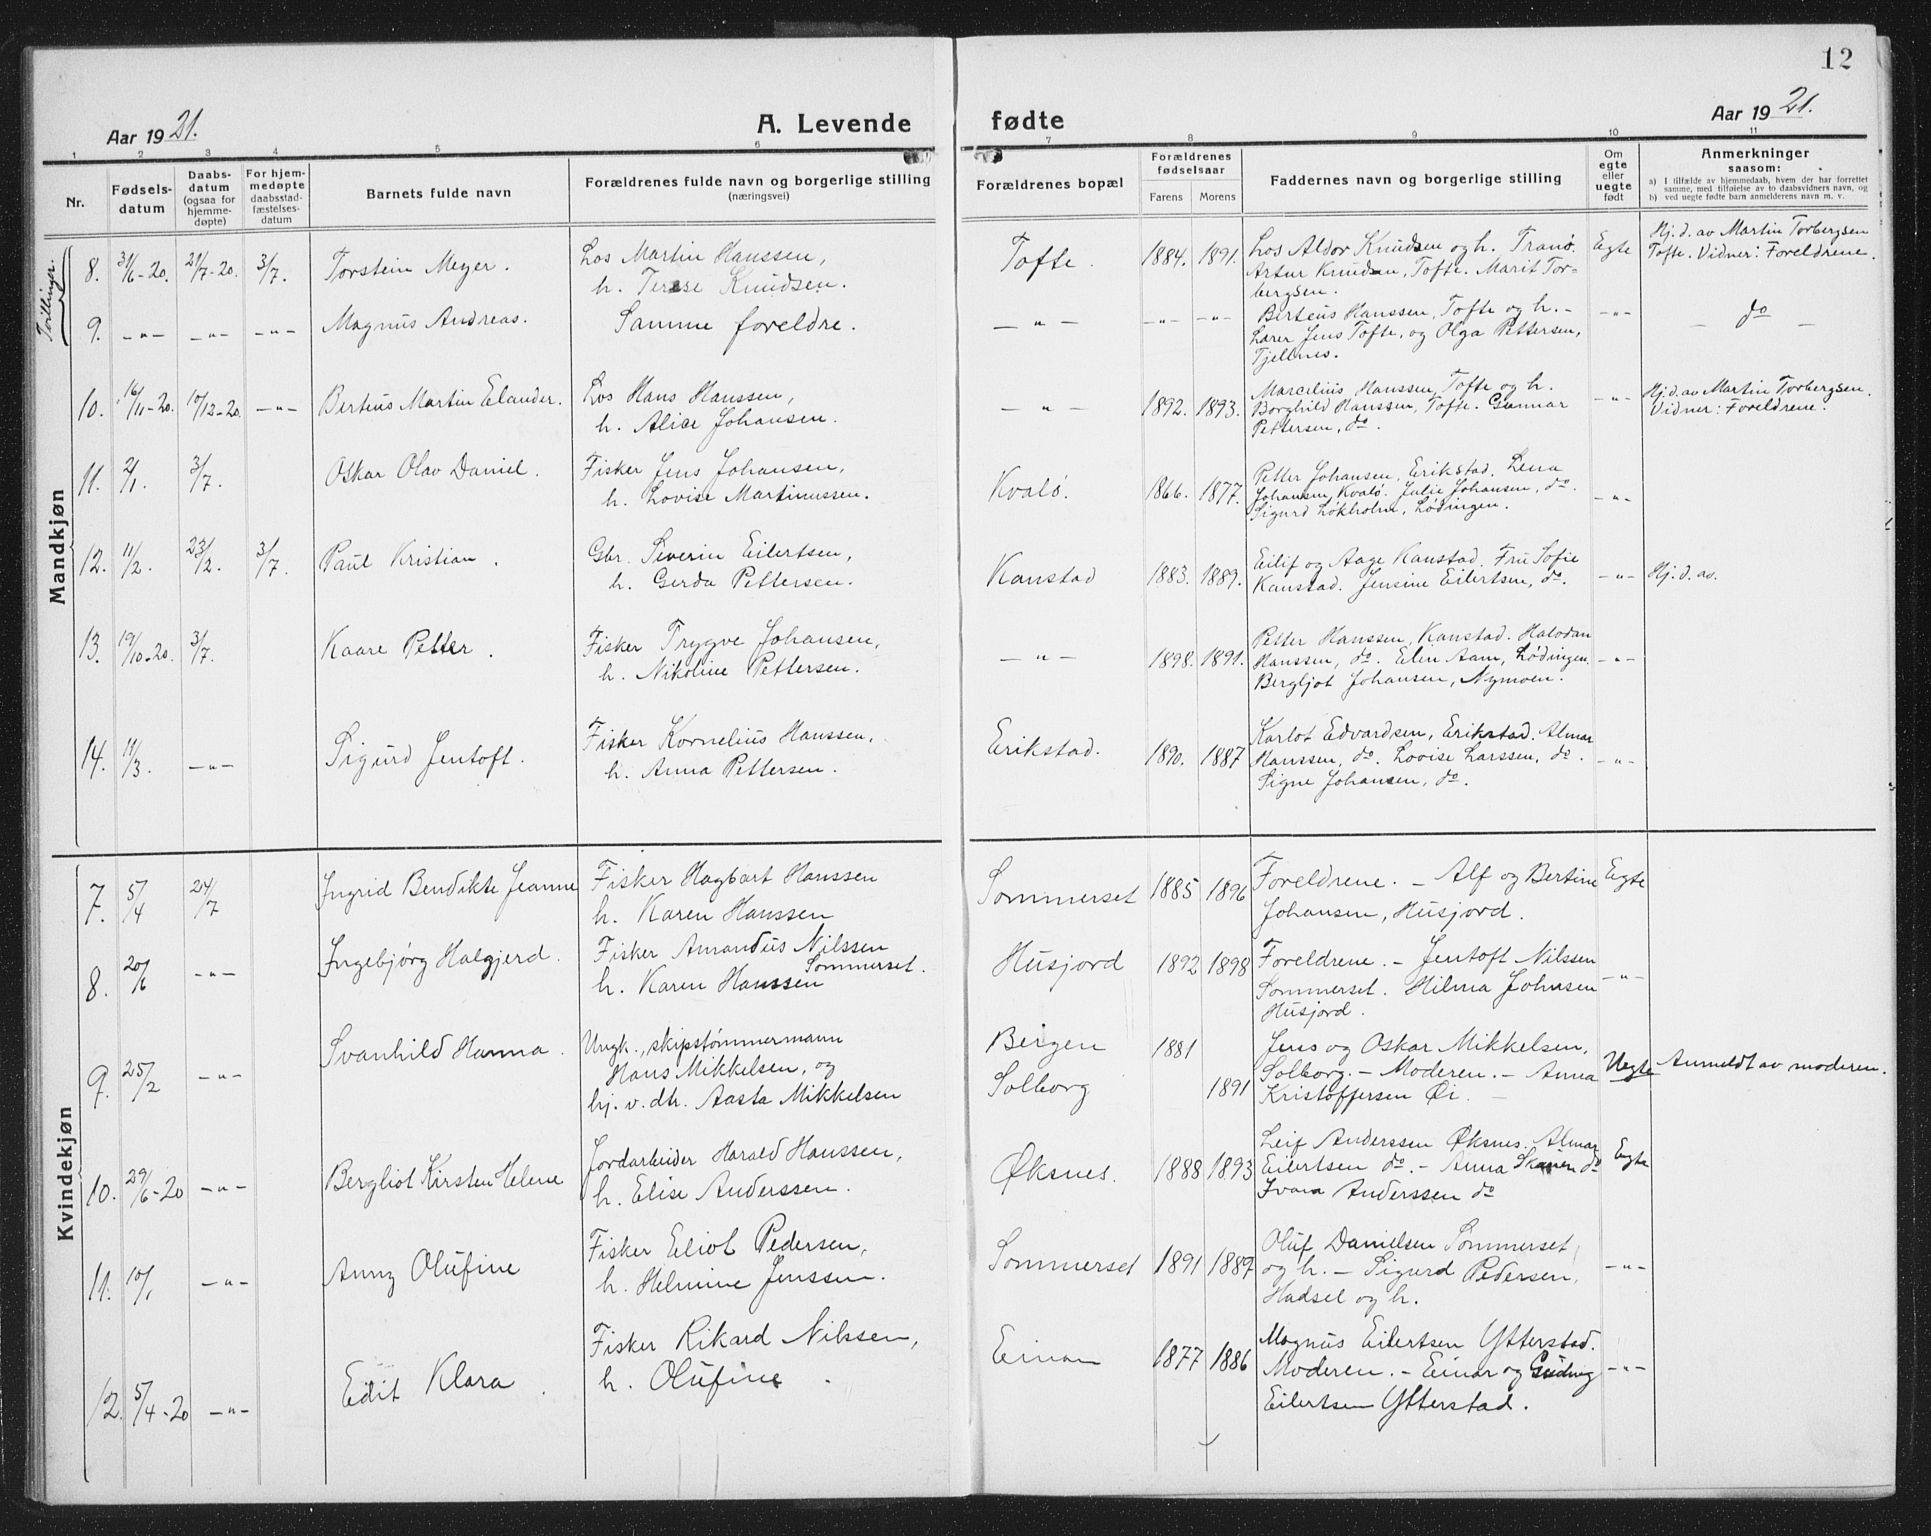 12
Aar 1921. A. Levende fødte Aar 1921.
1 2 3 4 5 6 7 8 9 10 11
Nr.
Fødsels-
datum
Daabs-
datum
(ogsaa for
hjemme-
døpte)
For hjem-
medøpte
daabsstad-
fæstelses-
datum
Barnets fulde navn
Forældrenes fulde navn og borgerlige stilling
(næringsvei)
Forældrenes bopæl
Forældrenes
fødselsaar
Farens Morens
Faddernes navn og borgerlige stilling
Om
egte
eller
uegte
født
Anmerkninger
saasom:
a) I tilfælde av hjemmedaab, hvem der har forrettet
samme, med tilføielse av to daabsvidners navn, og
b) ved uegte fødte barn anmelderens navn m. v.
Mandkjøn
Tvillinger.
8. 31/6-20. 21/7-20. 3/7. Torstein Meyer.
Los Martin Hanssen,
h. Terese Knudsen.
Tofte. 1884. 1891.
Los Aldor Knudsen og h. Tranø.
Artur Knudsen, Tofte. Marit Tor-
bergsen.
Egte
Hj. d. av Martin Torbergsen
Tofte. Vidner: Foreldrene.
9. -"- -"- -"- Magnus Andreas. Samme foreldre.
-"- -"- -"-
Berteus Hanssen, Tofte og h. -
Lærer Jens Tofte, og Olga Pettersen,
Tjellnes.
-"- - do -
10. 16/11-20. 10/12-20. -"- Berteus Martin Elander.
Los Hans Hanssen,
h. Alice Johansen.
-"- 1892. 1893.
Marcelius Hanssen, Tofte og h.
Borghild Hanssen, Tofte. Gunnar
Pettersen, do.
-"-
Hj. d. av Martin Torbergsen.
Vidner: Foreldrene.
11. 2/1. 3/7. Oskar Olav Daniel.
Fisker Jens Johansen,
h. Lovise Martinussen.
Kvalø. 1866. 1877.
Petter Johansen, Erikstad. Lena
Johansen, Kvalø. Julie Johansen, do.
Sigurd Løkholm, Lødingen.
-"-
12. 11/2. 23/2. 3/7. Paul Kristian.
Gbr. Severin Eilertsen,
h. Gerda Pettersen.
Kanstad 1883. 1889.
Eilif og Aage Kanstad. Fru Sofie
Kanstad. Jensine Eilertsen, do.
-"- Hj. d. av.
13. 19/10-20. 3/7. Kaare Petter.
Fisker Trygve Johansen,
h. Nikoline Pettersen.
-"- 1898. 1891.
Petter Hanssen, Kanstad. Halvdan
Hanssen, do. Elin Aam, Lødingen.
Bergljot Johansen, Nymoen.
-"-
14. 11/3. -"- Sigurd Jentoft.
Fisker Kornelius Hanssen,
h. Anna Pettersen.
Erikstad. 1890. 1887
Karlot Edvardsen, Erikstad. Almar
Hanssen, do. Lovise Larssen, do.
Signe Johansen, do.
-"-
Kvindekjøn
7. 5/4 24/7 Ingrid Bendikte Jeanne
Fisker Hagbart Hanssen
h. Karen Hanssen
Sommerset 1885 1896
Foreldrene. - Alf og Bertine
Johansen, Husjord.
Egte
8. 20/6 -"- Ingebjørg Halgjerd.
Fisker Amandus Nilssen
Sommerset.
h. Karen Hanssen
Husjord 1892 1898
Foreldrene. - Jentoft Nilssen
Sommerset. Hilma Johnsen
Husjord.
-"-
9. 25/2 -"- Svanhild Hanna.
Ungk., skipstømmermann
Hans Mikkelsen, og
hj. v. dtr. Aasta Mikkelsen
Bergen 1881
Solborg 1891
Jens og Oskar Mikkelsen,
Solborg. - Moderen. - Anna
Kristoffersen Øi. -
Uegte Anmeldt av moderen.
10. 29/6-20 -"- Bergliot Kirsten Helene
Jordarbeider Harald Hanssen,
h. Elise Anderssen.
Øksnes. 1888 1893
Leif Anderssen Øksnes. Almar
Eilertsen do. - Anna Skaren do
Ivara Anderssen do
Egte
11. 10/1 -"- Anny Olufine
Fisker Eliot Pedersen,
h. Helmine Jenssen.
Sommerset 1891 1887
Oluf Danielsen Sommerset
og h. - Sigurd Pedersen,
Hadsel og h.
-"-
12. 5/4-20 -"- Edit Klara.
Fisker Rikard Nilssen,
h. Olufine.
Einan 1877 1886
Magnus Eilertsen Ytterstad.
Moderen. - Einar og
Eilertsen Ytterstad.
-"-